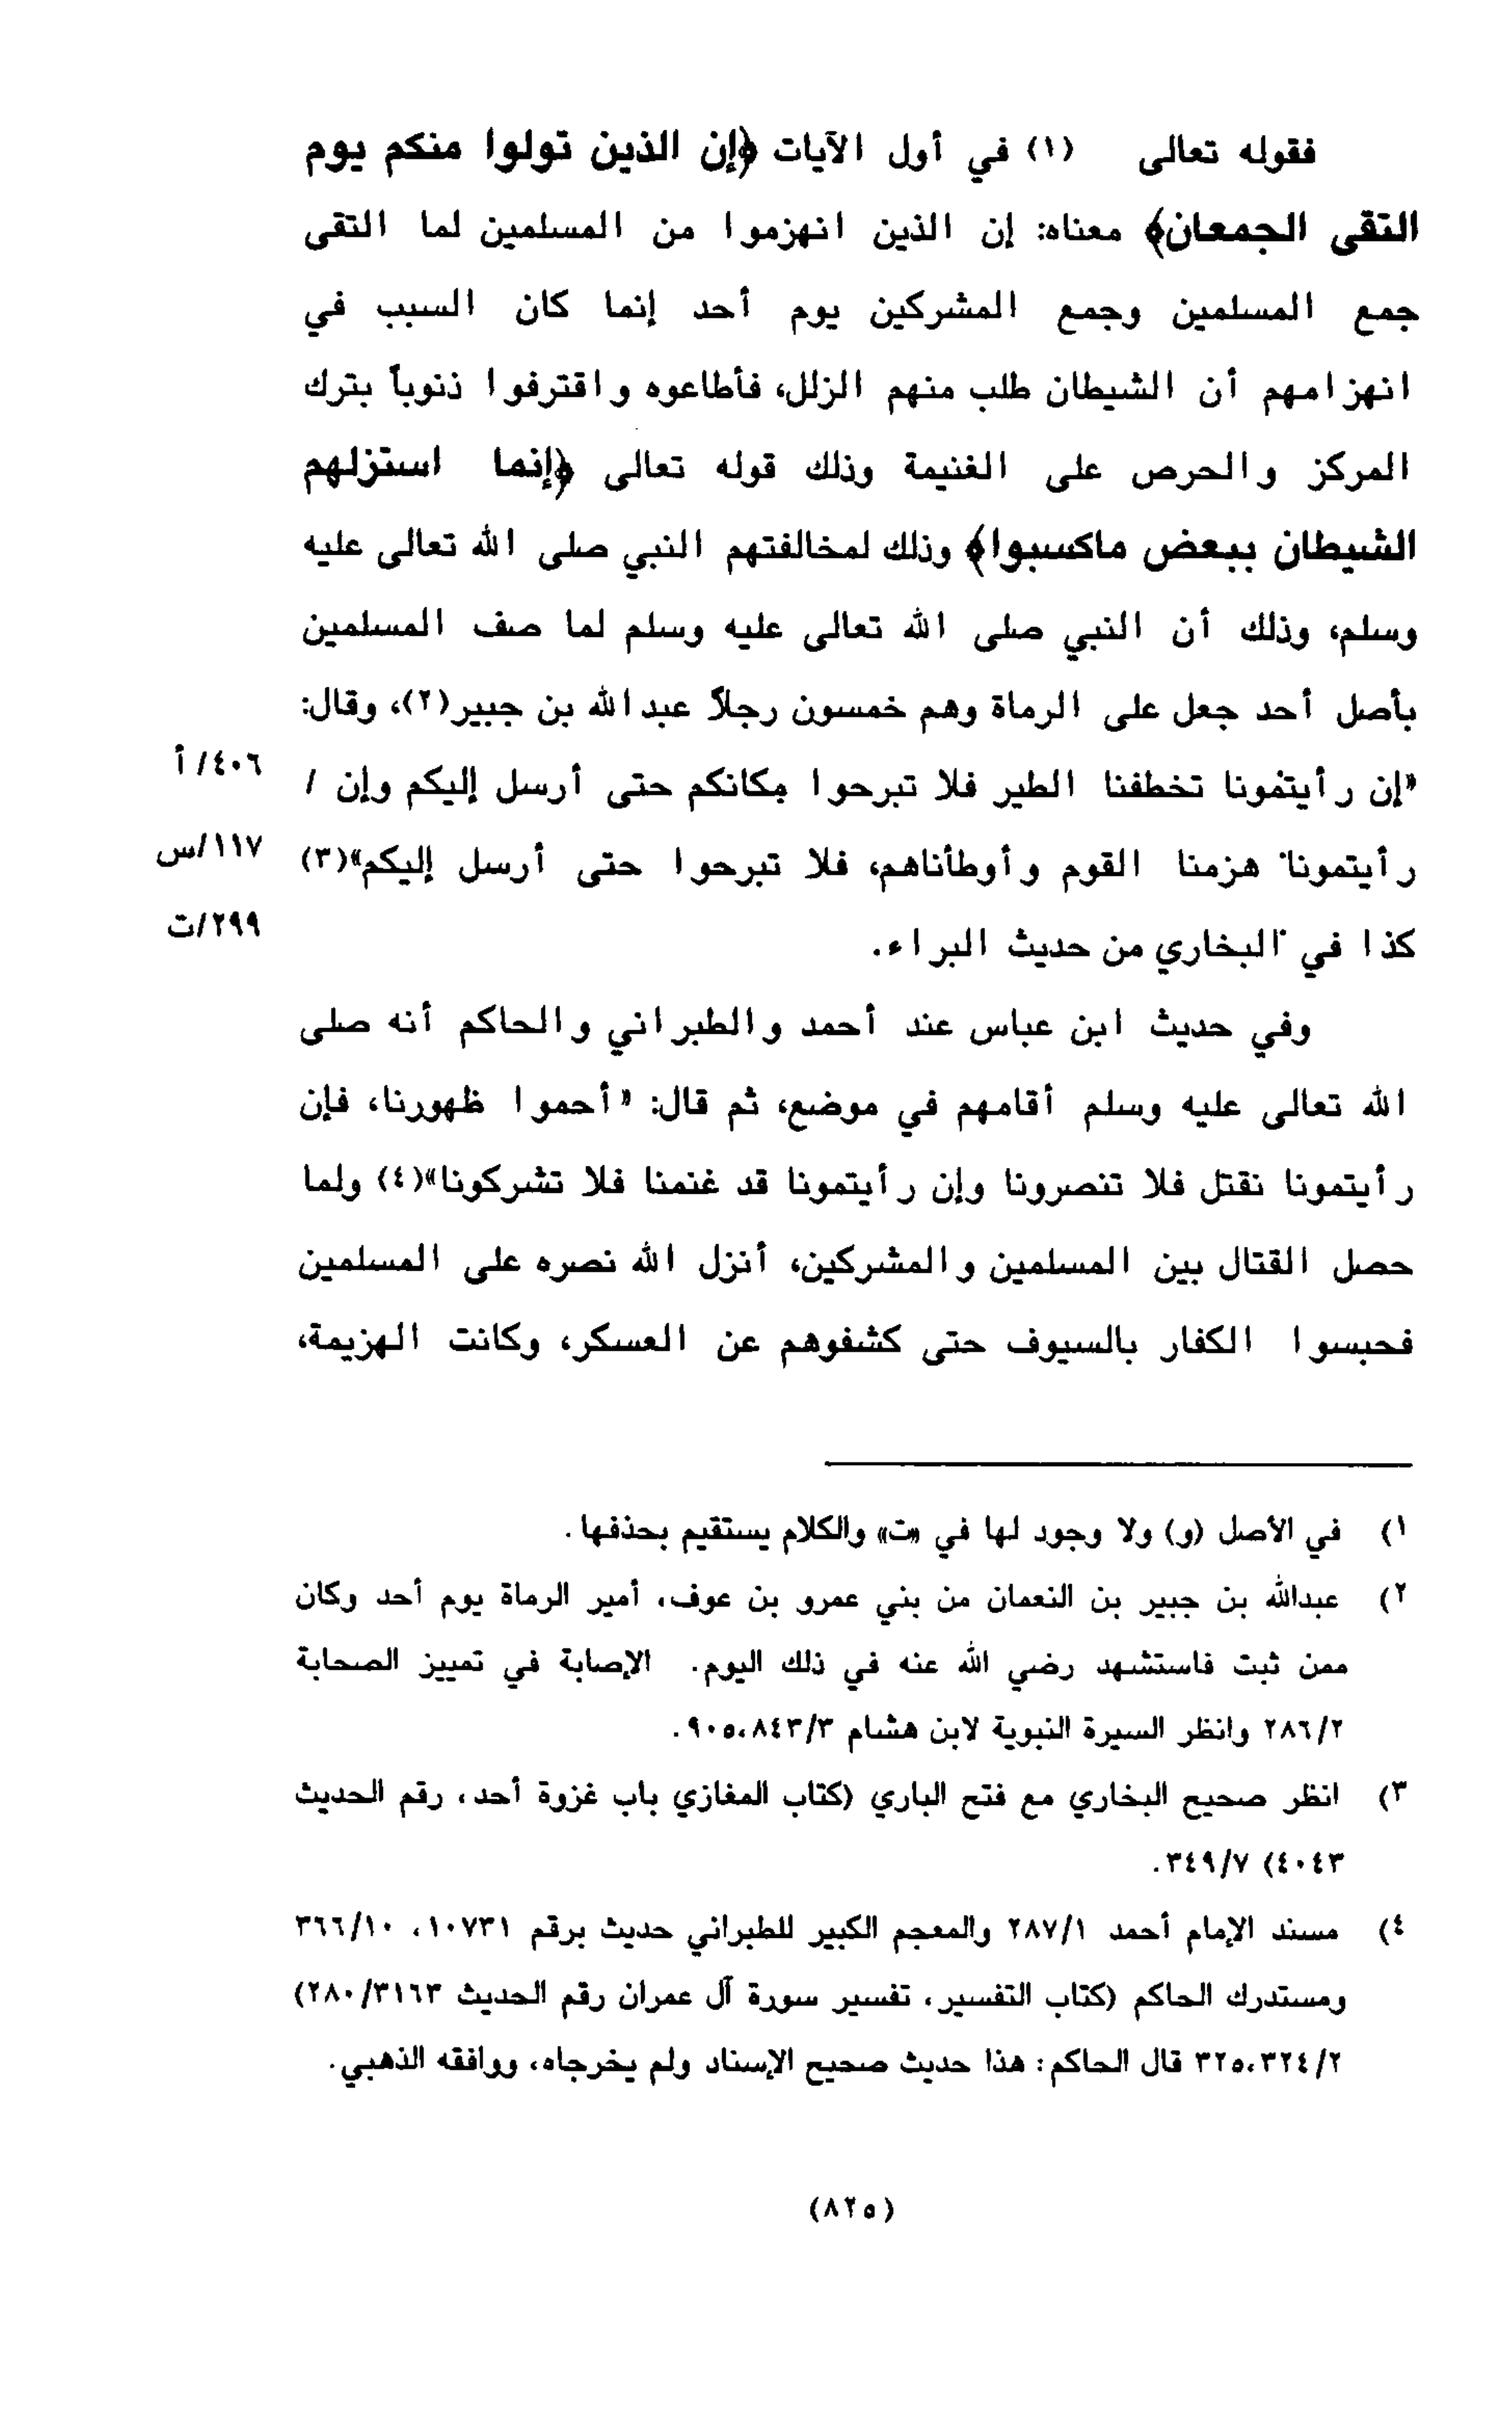 فقوله تعالى (١) في أول الآيات ﴿إن الذين تولوا منكم يوم
التقى الجمعان﴾ معناه: إن الذين انهزموا من المسلمين لما التقى
جمع المسلمين وجمع المشركين يوم أحد إنما كان السبب في
انهزامهم أن الشيطان طلب منهم الزلل، فأطاعوه واقترفوا ذنوباً بترك
المركز والحرص على الغنيمة وذلك قوله تعالى ﴿إنما استزلهم
الشيطان ببعض ماكسبوا﴾ وذلك لمخالفتهم النبي صلى الله تعالى عليه
وسلم، وذلك أن النبي صلى الله تعالى عليه وسلم لما صف المسلمين
بأصل أحد جعل على الرماة وهم خمسون رجلاً عبدالله بن جبير(٢)، وقال:
«إن رأيتمونا تخطفنا الطير فلا تبرحوا مكانكم حتى أرسل إليكم وإن /
٤٠٦/ أ
رأيتمونا هزمنا القوم وأوطأناهم، فلا تبرحوا حتى أرسل إليكم»(٣)
١١٧/س
كذا في البخاري من حديث البراء.
٢٩٩/ت
وفي حديث ابن عباس عند أحمد والطبراني والحاكم أنه صلى
الله تعالى عليه وسلم أقامهم في موضع، ثم قال: «أحموا ظهورنا، فإن
رأيتمونا نقتل فلا تنصرونا وإن رأيتمونا قد غنمنا فلا تشركونا»(٤) ولما
حصل القتال بين المسلمين والمشركين، أنزل الله نصره على المسلمين
فحبسوا الكفار بالسيوف حتى كشفوهم عن العسكر، وكانت الهزيمة،
١) في الأصل (و) ولا وجود لها في «ت» والكلام يستقيم بحذفها.
٢) عبدالله بن جبير بن النعمان من بني عمرو بن عوف، أمير الرماة يوم أحد وكان
ممن ثبت فاستشهد رضي الله عنه في ذلك اليوم. الإصابة في تمييز الصحابة
٢٨٦/٢ وانظر السيرة النبوية لابن هشام ٨٤٣/٣،٩٠٥.
٣) انظر صحيح البخاري مع فتح الباري (كتاب المغازي باب غزوة أحد، رقم الحديث
٤٠٤٣) ٣٤٩/٧.
٤) مسند الإمام أحمد ٢٨٧/١ والمعجم الكبير للطبراني حديث برقم ١٠٧٣١، ٣٦٦/١٠
ومستدرك الحاكم (كتاب التفسير، تفسير سورة آل عمران رقم الحديث ٢٨٠/٣١٦٣)
٣٢٤/٢،٣٢٥ قال الحاكم: هذا حديث صحيح الإسناد ولم يخرجاه، ووافقه الذهبي.
(٨٢٥)